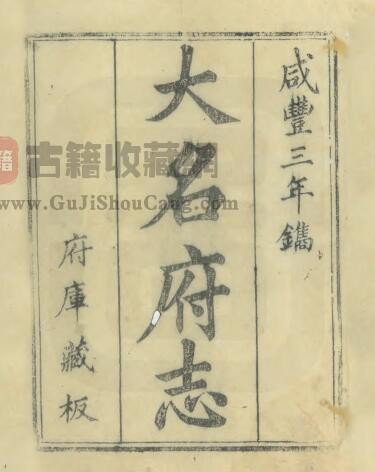 咸豐三年鐫
大名府志
府庫藏板
古籍收藏网
www.GuJiShouCang.com